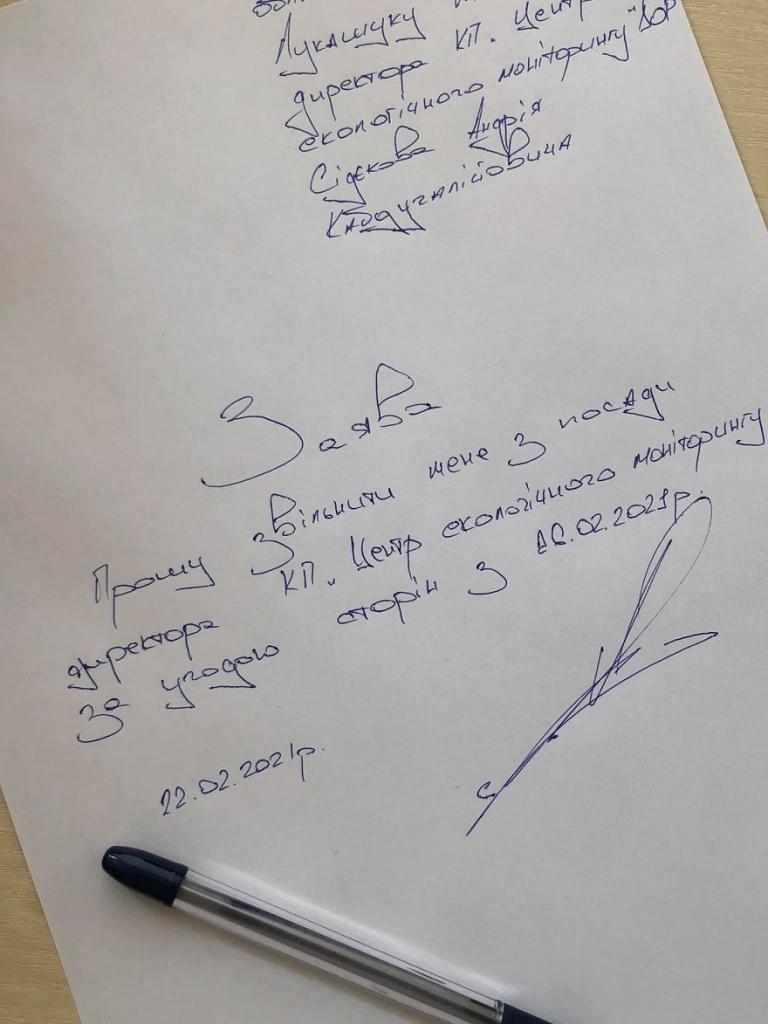 Лукашуку
директора КП. Центр
екологічного моніторингу" ДОР
Сідєкова Андрія
Заява
Прошу звільнити мене з посади
директора КП. Центр екологічного моніторингу
За угодою сторін з .02.2021р.
22.02.2021р.